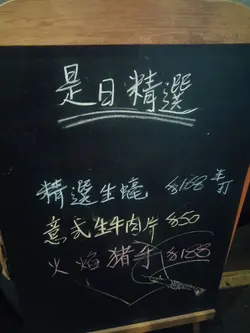 是日精選
精選生蠔 $188 半打
意式生牛肉片 $50
火焰猪手 $188